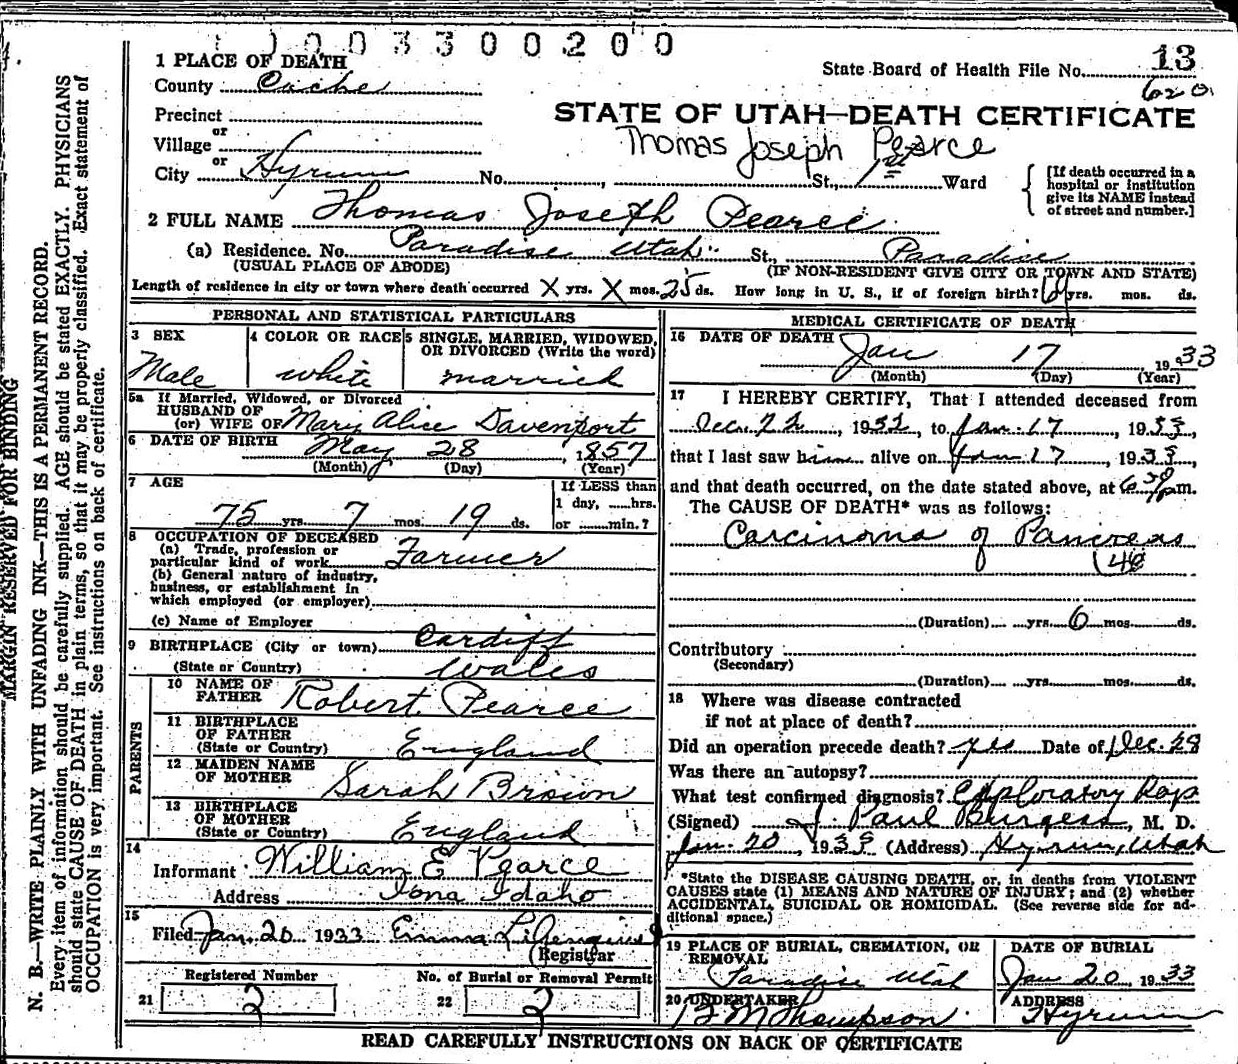 1003300200
1 PLACE OF DEATH
State Board of Health File No. 13
County Cache
620
Precinct
STATE OF UTAH—DEATH CERTIFICATE
or
Village
Thomas Joseph Pearce
or
City Hyrum No. , St., 1st Ward
[If death occurred in a
hospital or institution
give its NAME instead
of street and number.]
2 FULL NAME Thomas Joseph Pearce
(a) Residence. No. Paradise Utah St., Paradise
(USUAL PLACE OF ABODE) (IF NON-RESIDENT GIVE CITY OR TOWN AND STATE)
Length of residence in city or town where death occurred X yrs. X mos. 25 ds. How long in U. S., if of foreign birth? 69 yrs. mos. ds.
PERSONAL AND STATISTICAL PARTICULARS
3 SEX
Male
4 COLOR OR RACE
white
5 SINGLE, MARRIED, WIDOWED,
OR DIVORCED (Write the word)
married
5a If Married, Widowed, or Divorced
HUSBAND OF
(or) WIFE OF Mary Alice Davenport
6 DATE OF BIRTH May 28, 1857
(Month) (Day) (Year)
7 AGE
75 yrs. 7 mos. 19 ds.
If LESS than
1 day, ......hrs.
or ........min.?
8 OCCUPATION OF DECEASED
(a) Trade, profession or
particular kind of work Farmer
(b) General nature of industry,
business, or establishment in
which employed (or employer)
(c) Name of Employer
9 BIRTHPLACE (City or town) Cardiff
(State or Country) Wales
PARENTS
10 NAME OF
FATHER Robert Pearce
11 BIRTHPLACE
OF FATHER
(State or Country) England
12 MAIDEN NAME
OF MOTHER Sarah Brown
13 BIRTHPLACE
OF MOTHER
(State or Country) England
14
Informant William E Pearce
Address Iona Idaho
15
Filed Jan. 20 1933 Emma
(Registrar
Registered Number
21 2
No. of Burial or Removal Permit
22 2
MEDICAL CERTIFICATE OF DEATH
16 DATE OF DEATH
Jan 17 1933
(Month) (Day) (Year)
17 I HEREBY CERTIFY, That I attended deceased from
Dec. 22, 1932, to Jan. 17, 1933,
that I last saw him alive on Jan 17, 1933,
and that death occurred, on the date stated above, at 6 30 p m.
The CAUSE OF DEATH* was as follows:
Carcinoma of Pancreas
46
(Duration) yrs. 6 mos. ds.
Contributory
(Secondary)
(Duration) yrs. mos. ds.
18 Where was disease contracted
if not at place of death?
Did an operation precede death? yes Date of Dec. 28
Was there an autopsy?
What test confirmed diagnosis? Exploratory Lap
(Signed) J. Paul Burgess, M. D.
Jan. 20, 1933 (Address) Hyrum, Utah
*State the DISEASE CAUSING DEATH, or, in deaths from VIOLENT
CAUSES state (1) MEANS AND NATURE OF INJURY; and (2) whether
ACCIDENTAL, SUICIDAL OR HOMICIDAL. (See reverse side for ad-
ditional space.)
19 PLACE OF BURIAL, CREMATION, OR
REMOVAL
Paradise Utah
DATE OF BURIAL
Jan 20 1933
20 UNDERTAKER
B M Thompson
ADDRESS
Hyrum
READ CAREFULLY INSTRUCTIONS ON BACK OF CERTIFICATE
MARGIN RESERVED FOR BINDING
N. B.—WRITE PLAINLY WITH UNFADING INK—THIS IS A PERMANENT RECORD.
Every item of information should be carefully supplied. AGE should be stated EXACTLY. PHYSICIANS
should state CAUSE OF DEATH in plain terms, so that it may be properly classified. Exact statement of
OCCUPATION is very important. See instructions on back of certificate.